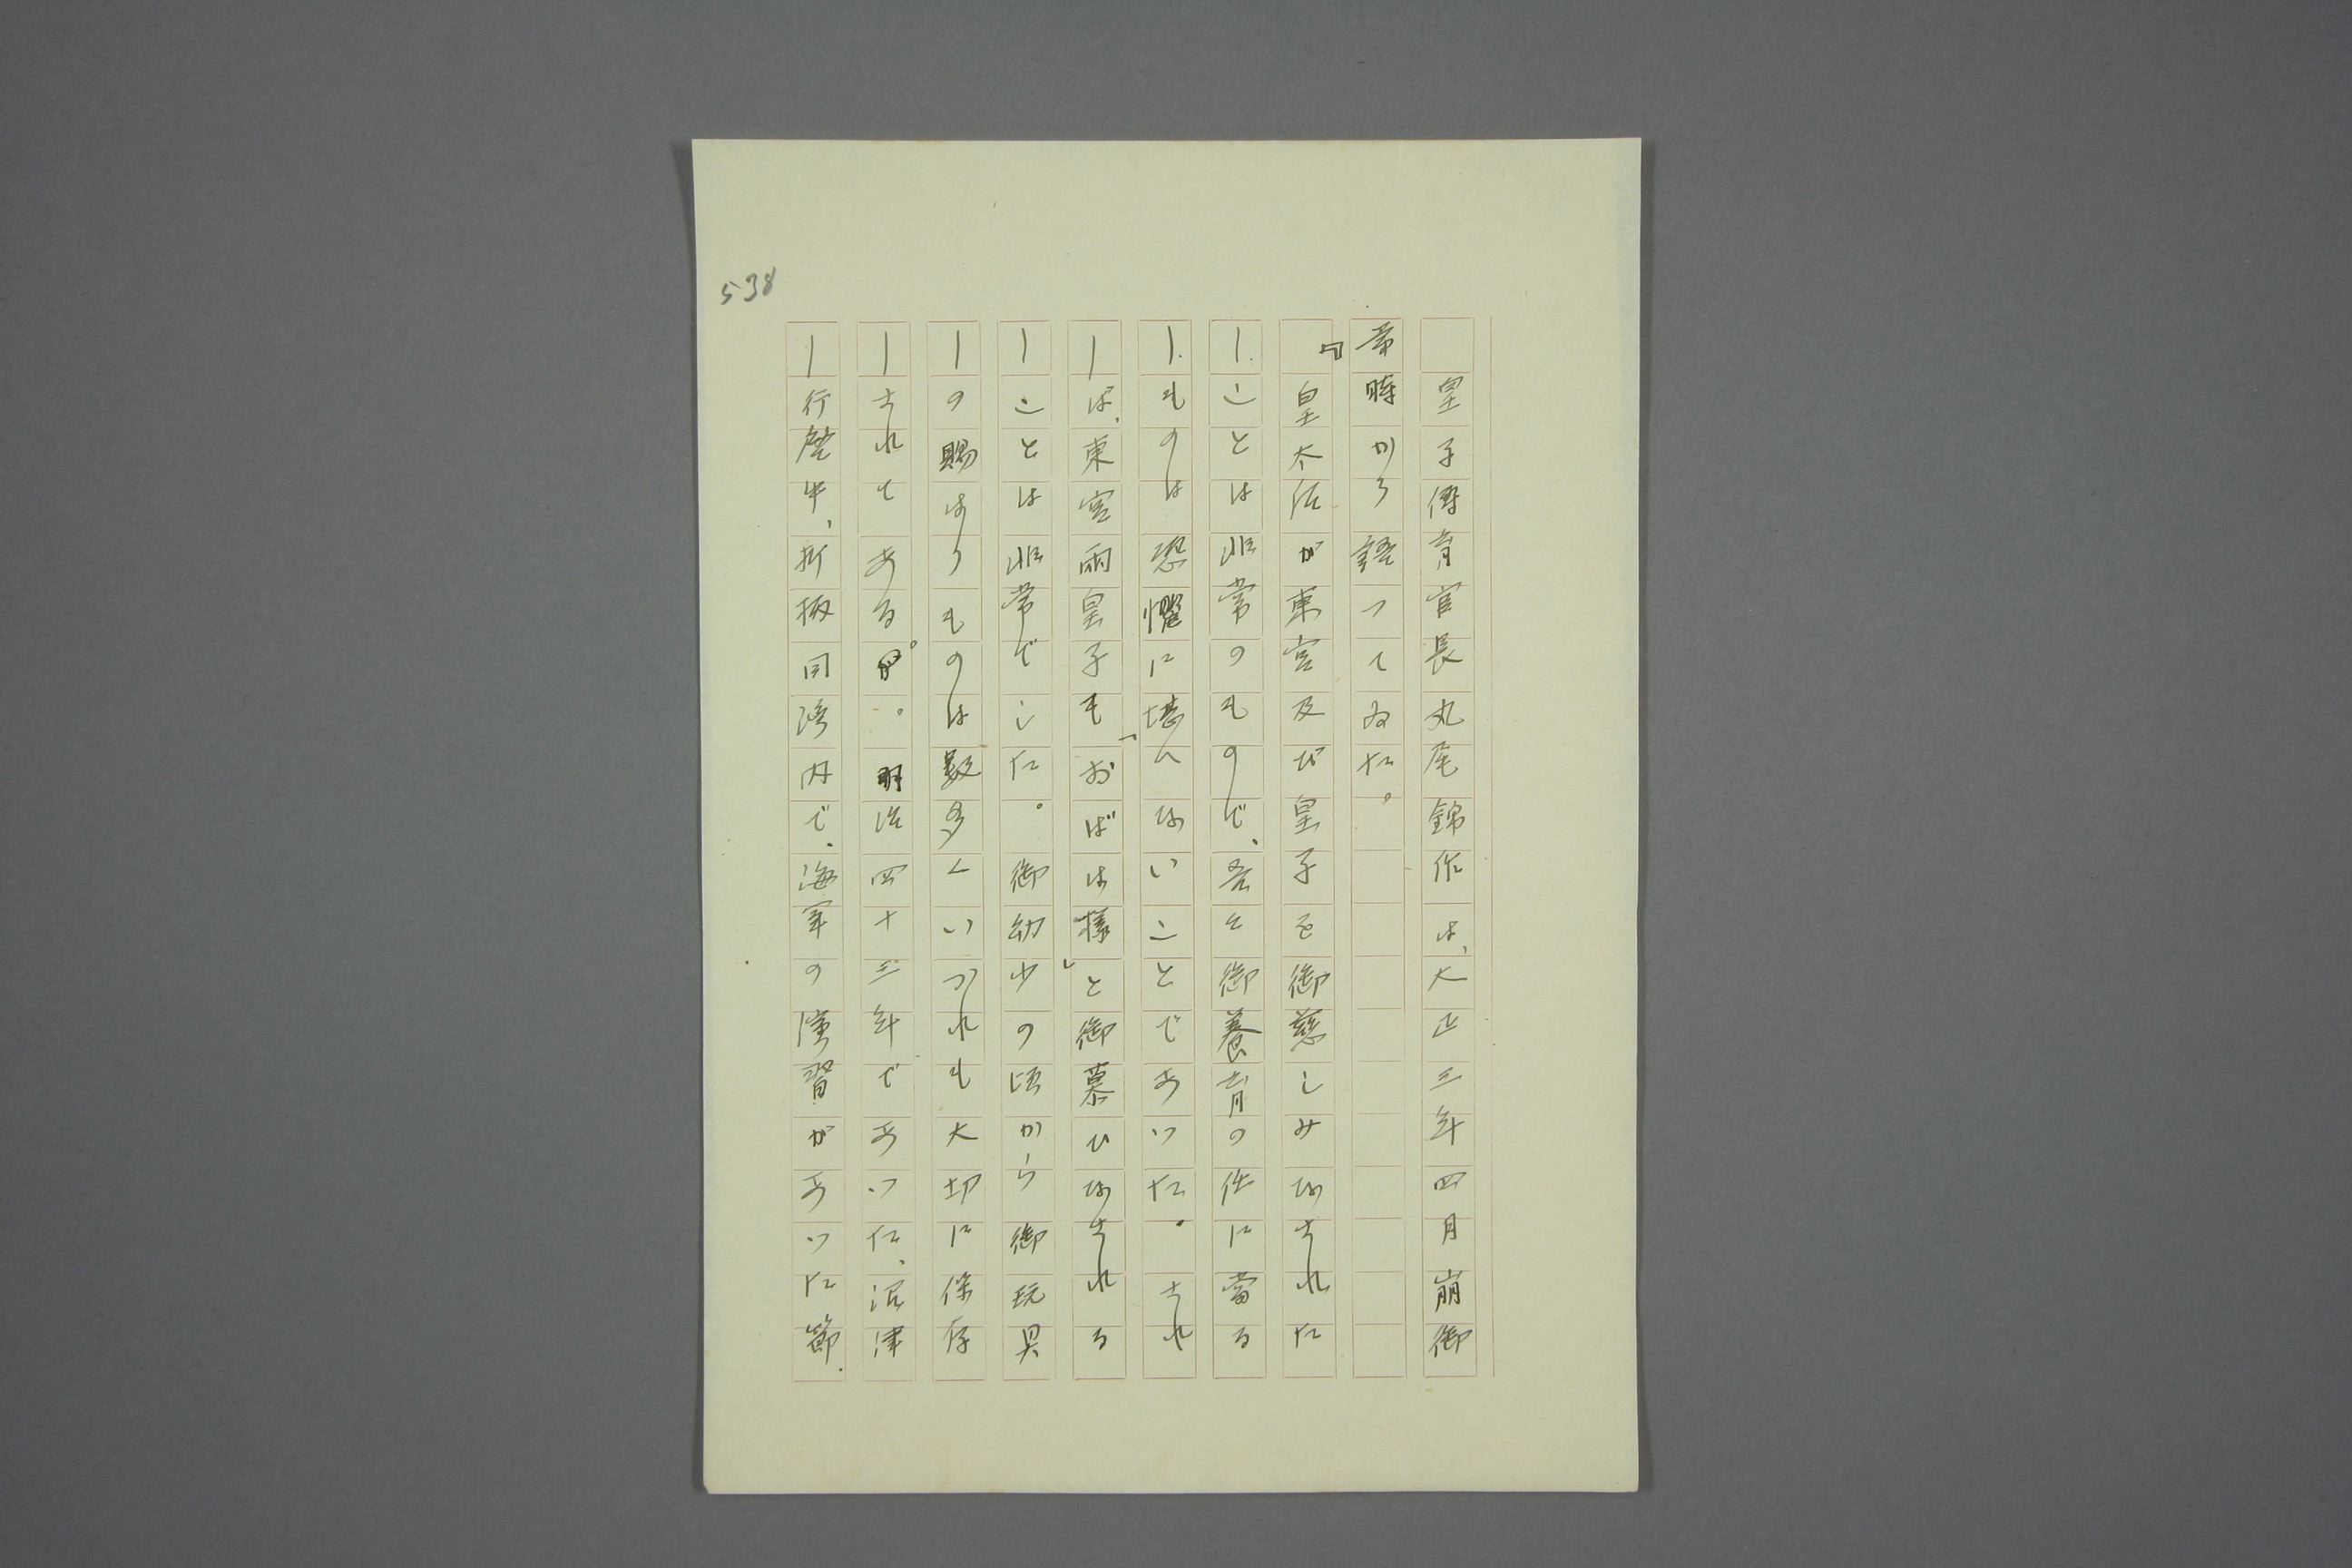 538
皇子傅育官長丸尾錦作は、大正三年四月崩御
当時かう語つてゐた。
『皇太后が東宮及び皇子を御慈しみなされた
ことは非常のもので、吾々御養育の任に當る
ものは恐懼に堪へないことであつた。され
ば、東宮両皇子も「おばば様」と御慕ひなされる
ことは非常でした。御幼少の頃から御玩具
の賜はりものは数多くいづれも大切に保存
されてある。明治四十三年であつた、沼津
行啓中、折柄同湾内で、海軍の演習があつた節、